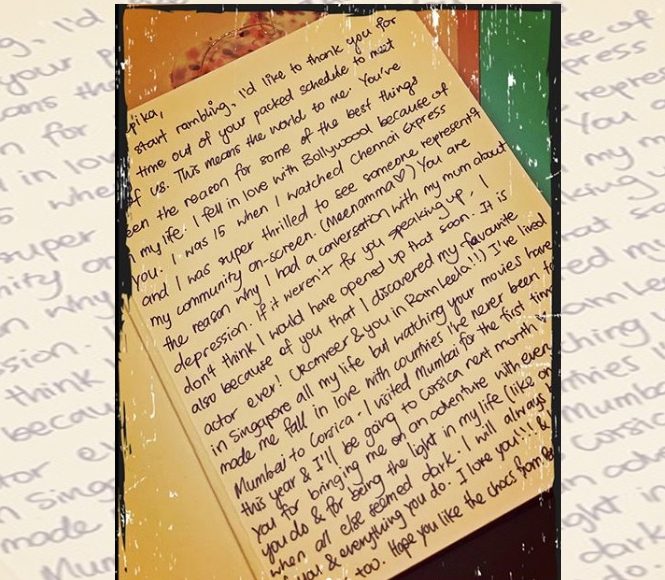 pika,
start rambling, I'd like to thank you for
time out of your packed schedule to meet
of us. This means the world to me. You've
een the reason for some of the best things
my life. I fell in love with Bollywood because of
you. I was 15 when I watched Chennai Express
and I was super thrilled to see someone representing
my community on-screen. (Meenamma♡) You are
the reason why I had a conversation with my mum about
depression. If it weren't for you speaking up, I
don't think I would have opened up that soon. It is
also because of you that I discovered my favourite
actor ever! (Ranveer & you in Ram Leela!!) I've lived
in Singapore all my life but watching your movies have
made me fall in love with countries I've never been to
Mumbai to Corsica. I visited Mumbai for the first time
this year & I'll be going to Corsica next month.
you for bringing me on an adventure with every
you do & for being the light in my life (like
when all else seemed dark. I will always
you & everything you do. I love you!!! &
too. Hope you like the chocs from